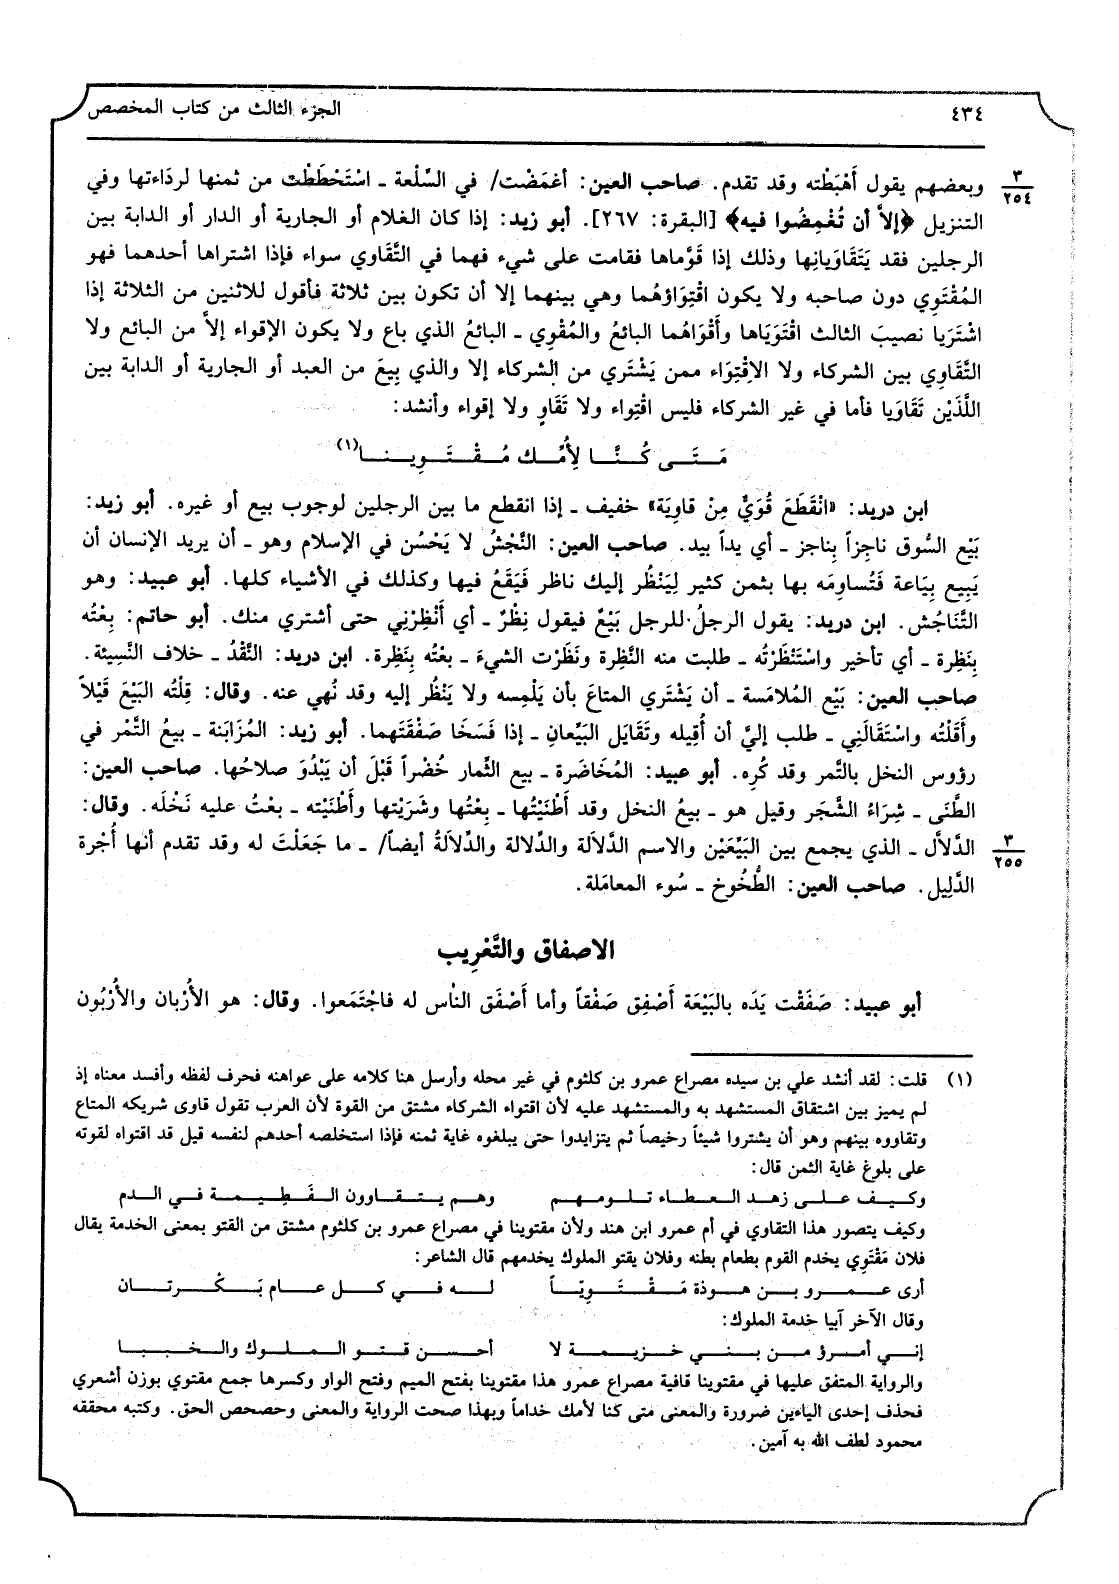 ٤٣٤
الجزء الثالث من كتاب المخصص
٣
٢٥٤
وبعضهم يقول أَهْبَطْته وقد تقدم. صاحب العين: أغمَضْت/ في السِّلْعة ـ اسْتَحْطَطْت من ثمنها لردَاءتها وفي
التنزيل ﴿إلاَّ أن تُغْمِضُوا فيه﴾ [البقرة: ٢٦٧]. أبو زيد: إذا كان الغلام أو الجارية أو الدار أو الدابة بين
الرجلين فقد يَتَقَاوَيانِها وذلك إذا قَوَّماها فقامت على شيء فهما في التَّقَاوي سواء فإذا اشتراها أحدهما فهو
المُقْتَوِي دون صاحبه ولا يكون اقْتِوَاؤهُما وهي بينهما إلا أن تكون بين ثلاثة فأقول للاثنين من الثلاثة إذا
اشْتَرَيا نصيبَ الثالث اقْتَوَيَاها وأَقْوَاهُما البائعُ والمُقْوِي ـ البائعُ الذي باع ولا يكون الإقواء إلاَّ من البائع ولا
التَّقَاوِي بين الشركاء ولا الاِقْتِوَاء ممن يَشْتَري من الشركاء إلا والذي بِيعَ من العبد أو الجارية أو الدابة بين
اللَّذَيْن تَقَاوَيا فأما في غير الشركاء فليس اقْتِواء ولا تَقَاوٍ ولا إقواء وأنشد:
مَـتَـى كُـنَّـا لِأُمِّـكَ مُـقْـتَـوِيـنـا(١)
ابن دريد: «انْقَطَعَ قُوَيٌّ مِنْ قاوِيَة» خفيف ـ إذا انقطع ما بين الرجلين لوجوب بيع أو غيره. أبو زيد:
بَيْع السُّوق ناجِزاً بِناجز ـ أي يداً بيد. صاحب العين: النَّجْشُ لا يَحْسُن في الإسلام وهو ـ أن يريد الإنسان أن
يَبِيع بِيَاعة فَتُساوِمَه بها بثمن كثير لِيَنْظُر إليك ناظر فَيَقَعُ فيها وكذلك في الأشياء كلها. أبو عبيد: وهو
التَّنَاجُش. ابن دريد: يقول الرجلُ للرجل بَيْعٌ فيقول نِظْرٌ ـ أي أَنْظِرْنِي حتى أشتري منك. أبو حاتم: بِعْتُه
بِنَظِرة ـ أي تأخير واسْتَنْظَرْتُه ـ طلبت منه النَّظِرة ونَظَرْت الشيءَ ـ بعْتُه بِنَظِرة. ابن دريد: النَّقْدُ ـ خلاف النَّسِيئة.
صاحب العين: بَيْع المُلامَسة ـ أن يَشْتَري المتاعَ بأن يَلْمِسه ولا يَنْظُر إليه وقد نُهي عنه. وقال: قِلْتُه البَيْعَ قَيْلاً
وأَقَلْتُه واسْتَقَالَني ـ طلب إليَّ أن أُقِيله وتَقَايَل البَيِّعان ـ إذا فَسَخَا صَفْقَتَهما. أبو زيد: المُزَابَنة ـ بيعُ التَّمْر في
رؤوس النخل بالتَّمر وقد كُرِه. أبو عبيد: المُخَاضَرة ـ بيع الثِّمار خُضْراً قَبْلَ أن يَبْدُوَ صلاحُها. صاحب العين:
الطَّنَى ـ شِرَاءُ الشَّجَر وقيل هو ـ بيعُ النخل وقد أَطْنَيْتُها ـ بِعْتُها وشَرَيْتها وأَطْنَيْته ـ بعْتُ عليه نَخْلَه. وقال:
٣
٢٥٥
الدَّلاَّل ـ الذي يجمع بين البَيِّعَيْن والاسم الدَّلاَلة والدِّلالة والدِّلاَلةُ أيضاً/ ـ ما جَعَلْتَ له وقد تقدم أنها أُجْرة
الدَّلِيل. صاحب العين: الطُّخُوخ ـ سُوء المعامَلة.
الاصفاق والتَّعْرِيب
أبو عبيد: صَفَقْت يَدَه بالبَيْعَة أَصْفِق صَفْقاً وأما أَصْفَق الناس له فاجْتَمَعوا. وقال: هو الأُرْبان والأُرْبُون
(١) قلت: لقد أنشد علي بن سيده مصراع عمرو بن كلثوم في غير محله وأرسل هنا كلامه على عواهنه فحرف لفظه وأفسد معناه إذ
لم يميز بين اشتقاق المستشهد به والمستشهد عليه لأن اقتواء الشركاء مشتق من القوة لأن العرب تقول قاوى شريكه المتاع
وتقاووه بينهم وهو أن يشتروا شيئاً رخيصاً ثم يتزايدوا حتى يبلغوه غاية ثمنه فإذا استخلصه أحدهم لنفسه قيل قد اقتواه لقوته
على بلوغ غاية الثمن قال:
وكـيـف عـلـى زهـد الـعـطـاء تـلـومـهـم وهـم يـتـقـاوون الـفَـطِـيـمـة فـي الـدم
وكيف يتصور هذا التقاوي في أم عمرو ابن هند ولأن مقتوينا في مصراع عمرو بن كلثوم مشتق من القتو بمعنى الخدمة يقال
فلان مَقْتَوِي يخدم القوم بطعام بطنه وفلان يقتو الملوك يخدمهم قال الشاعر:
أرى عـمـرو بـن هـوذة مَـقْـتَـوِيّـاً لـه فـي كـل عـام بَـكْـرتـان
وقال الآخر آبيا خدمة الملوك:
إنـي أمـرؤ مـن بـنـي خـزيـمـة لا أحـسـن قـتـو الـمـلـوك والـخـبـبـا
والرواية المتفق عليها في مقتوينا قافية مصراع عمرو هذا مقتوينا بفتح الميم وفتح الواو وكسرها جمع مقتوي بوزن أشعري
فحذف إحدى الياءين ضرورة والمعنى متى كنا لأمك خداماً وبهذا صحت الرواية والمعنى وحصحص الحق. وكتبه محققه
محمود لطف الله به آمين.